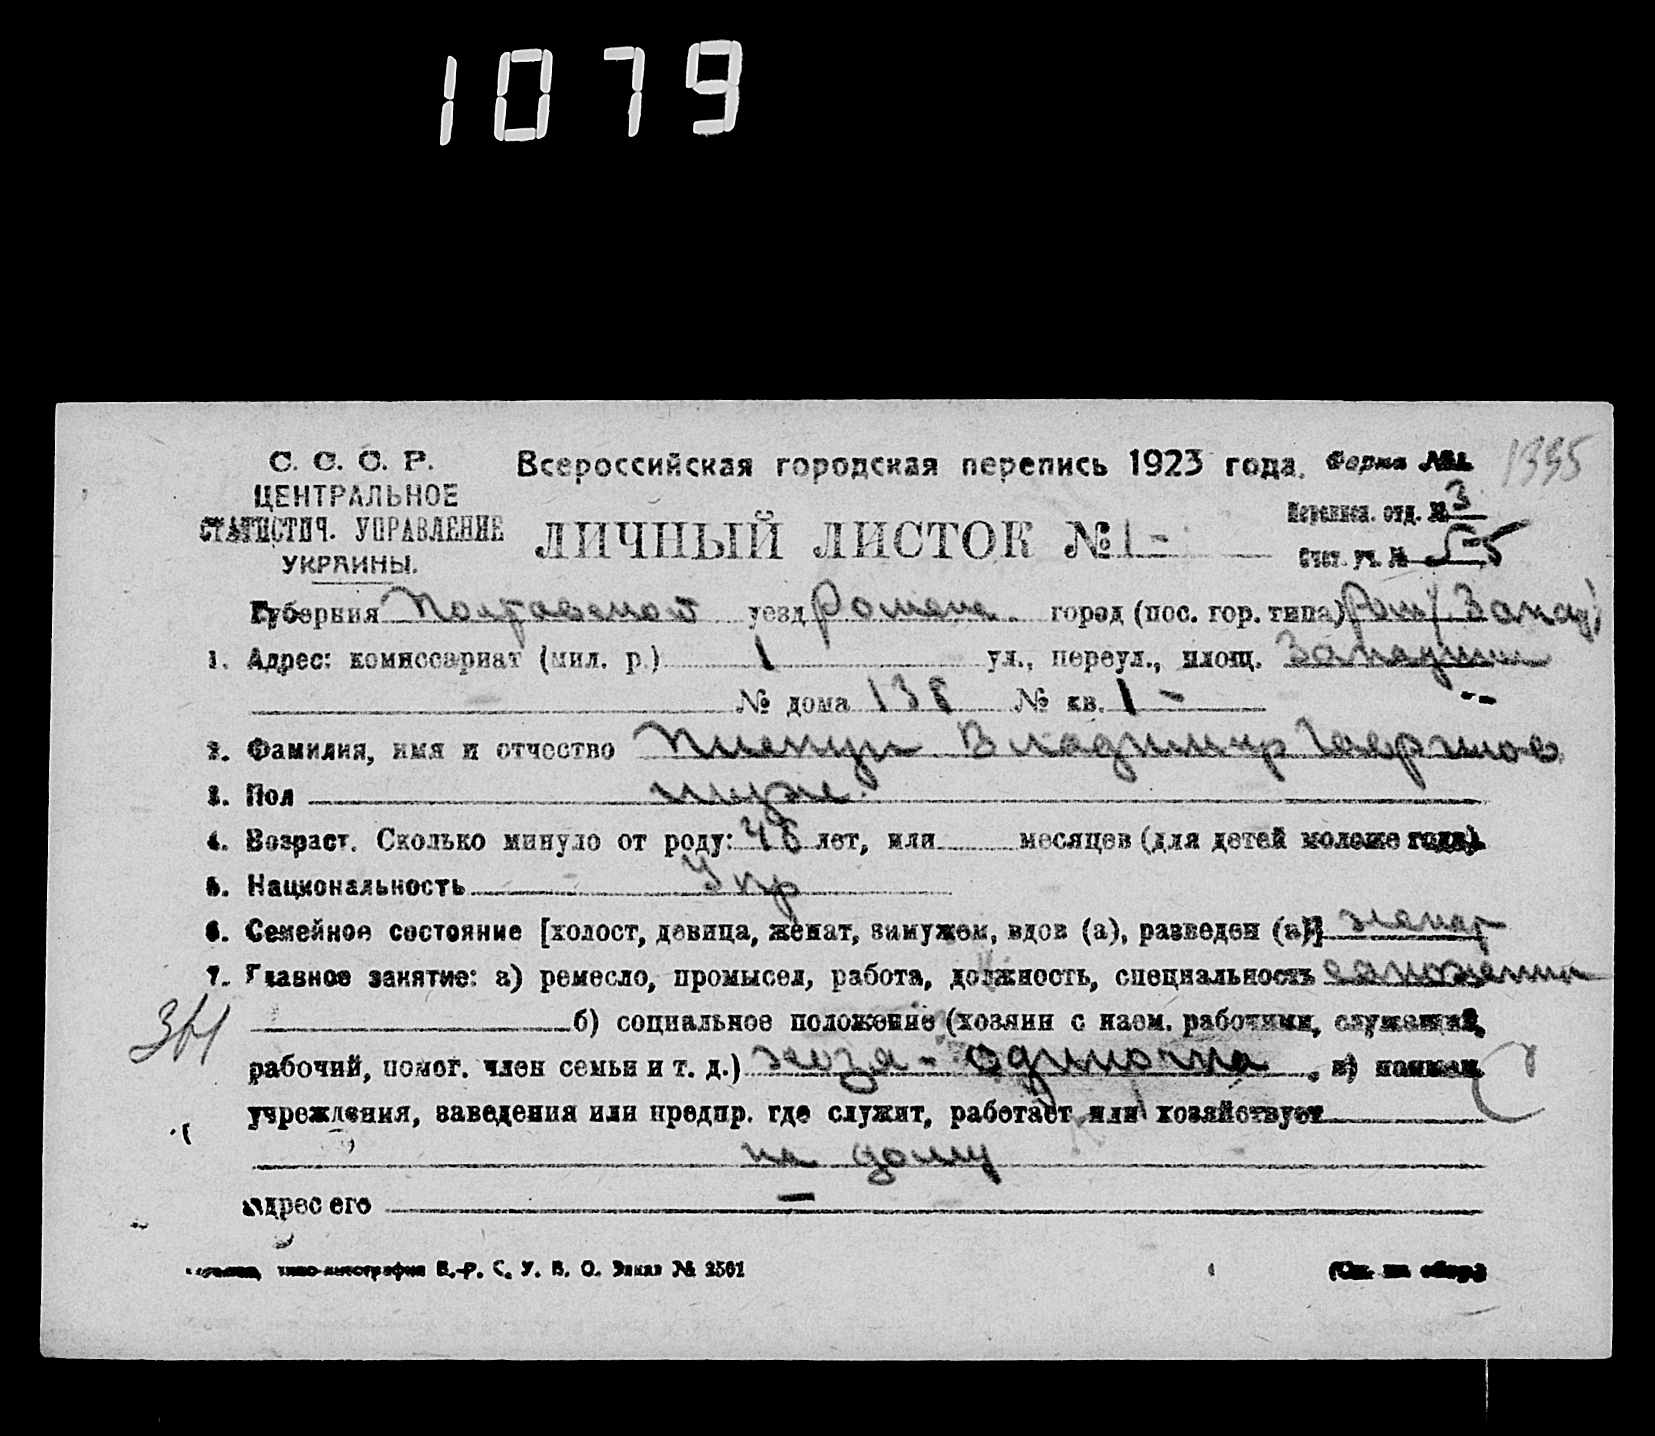 1079
С. С. С. Р.
ЦЕНТРАЛЬНОЕ
СТАТИСТИЧ. УПРАВЛЕНИЕ
УКРАИНЫ.
Всероссийская городская перепись 1923 года. Форма №1. 1395
ЛИЧНЫЙ ЛИСТОК № 1 -
Переписн. отд. № 3
Счет. уч. № 55
Губерния Полтавская уезд Ромен. город (пос. гор. типа)
1. Адрес: комиссариат (мил. р.) 1 ул., переул., площ.
№ дома 138 № кв. 1 -
2. Фамилия, имя и отчество Владимир Гаврилов
3. Пол муже.
4. Возраст. Сколько минуло от роду: 46 лет, или месяцев (для детей моложе года).
5. Национальность Укр
6. Семейное состояние [холост, девица, женат, замужем, вдов (а), разведен (а)] женат
7. Главное занятие: а) ремесло, промысел, работа, должность, специальность сапожник
б) социальное положение (хозяин с наем. рабочими, служащий,
рабочий, помог. член семьи и т. д.) хозя - одиночка, в) наимен.
учреждения, заведения или предпр. где служит, работает или хозяйствует
на дому
адрес его —
типо-литография В.-Р. С. У. В. О. Заказ № 2501
(См. на обор.)